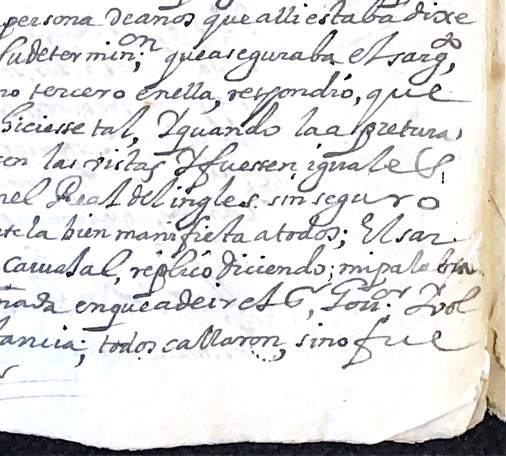 persona de años que alli estaba dixe
su determinon; que aseguraba el sargo,
no tercero en ella, respondió, que
hiciesse tal, Y quando la apretura,
en las vistas Y fuessen iguales,
nel Real del ingles, sin seguro
la bien manifiesta a todos; El sar
Carvajal, replicó diciendo; mi palabra
en que a de ir el Gr, Gouor, Y vol
tancia; todos callaron, sino fue